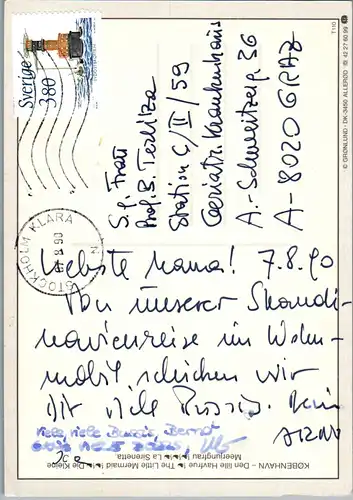 Sverige
380
STOCKHOLM KLARA
S.g. Frau
Prof. B.
Station C/II/59
Geriatr. Krankenhaus
A.-Schweitzerg. 36
A-8020 GRAZ
Liebste Mama! 7.8.90
Von unserer Skandi-
navienreise im Wohn-
mobil schicken wir
dir viele Bussis. Dein
viele, viele Bussis, Bernd
KØBENHAVN – Den lille Havfrue The Little Mermaid Die Kleine
Meerjungfrau La Sirenetta
© GRØNLUND · DK-3450 ALLERØD ☎ 42 27 60 99
T110